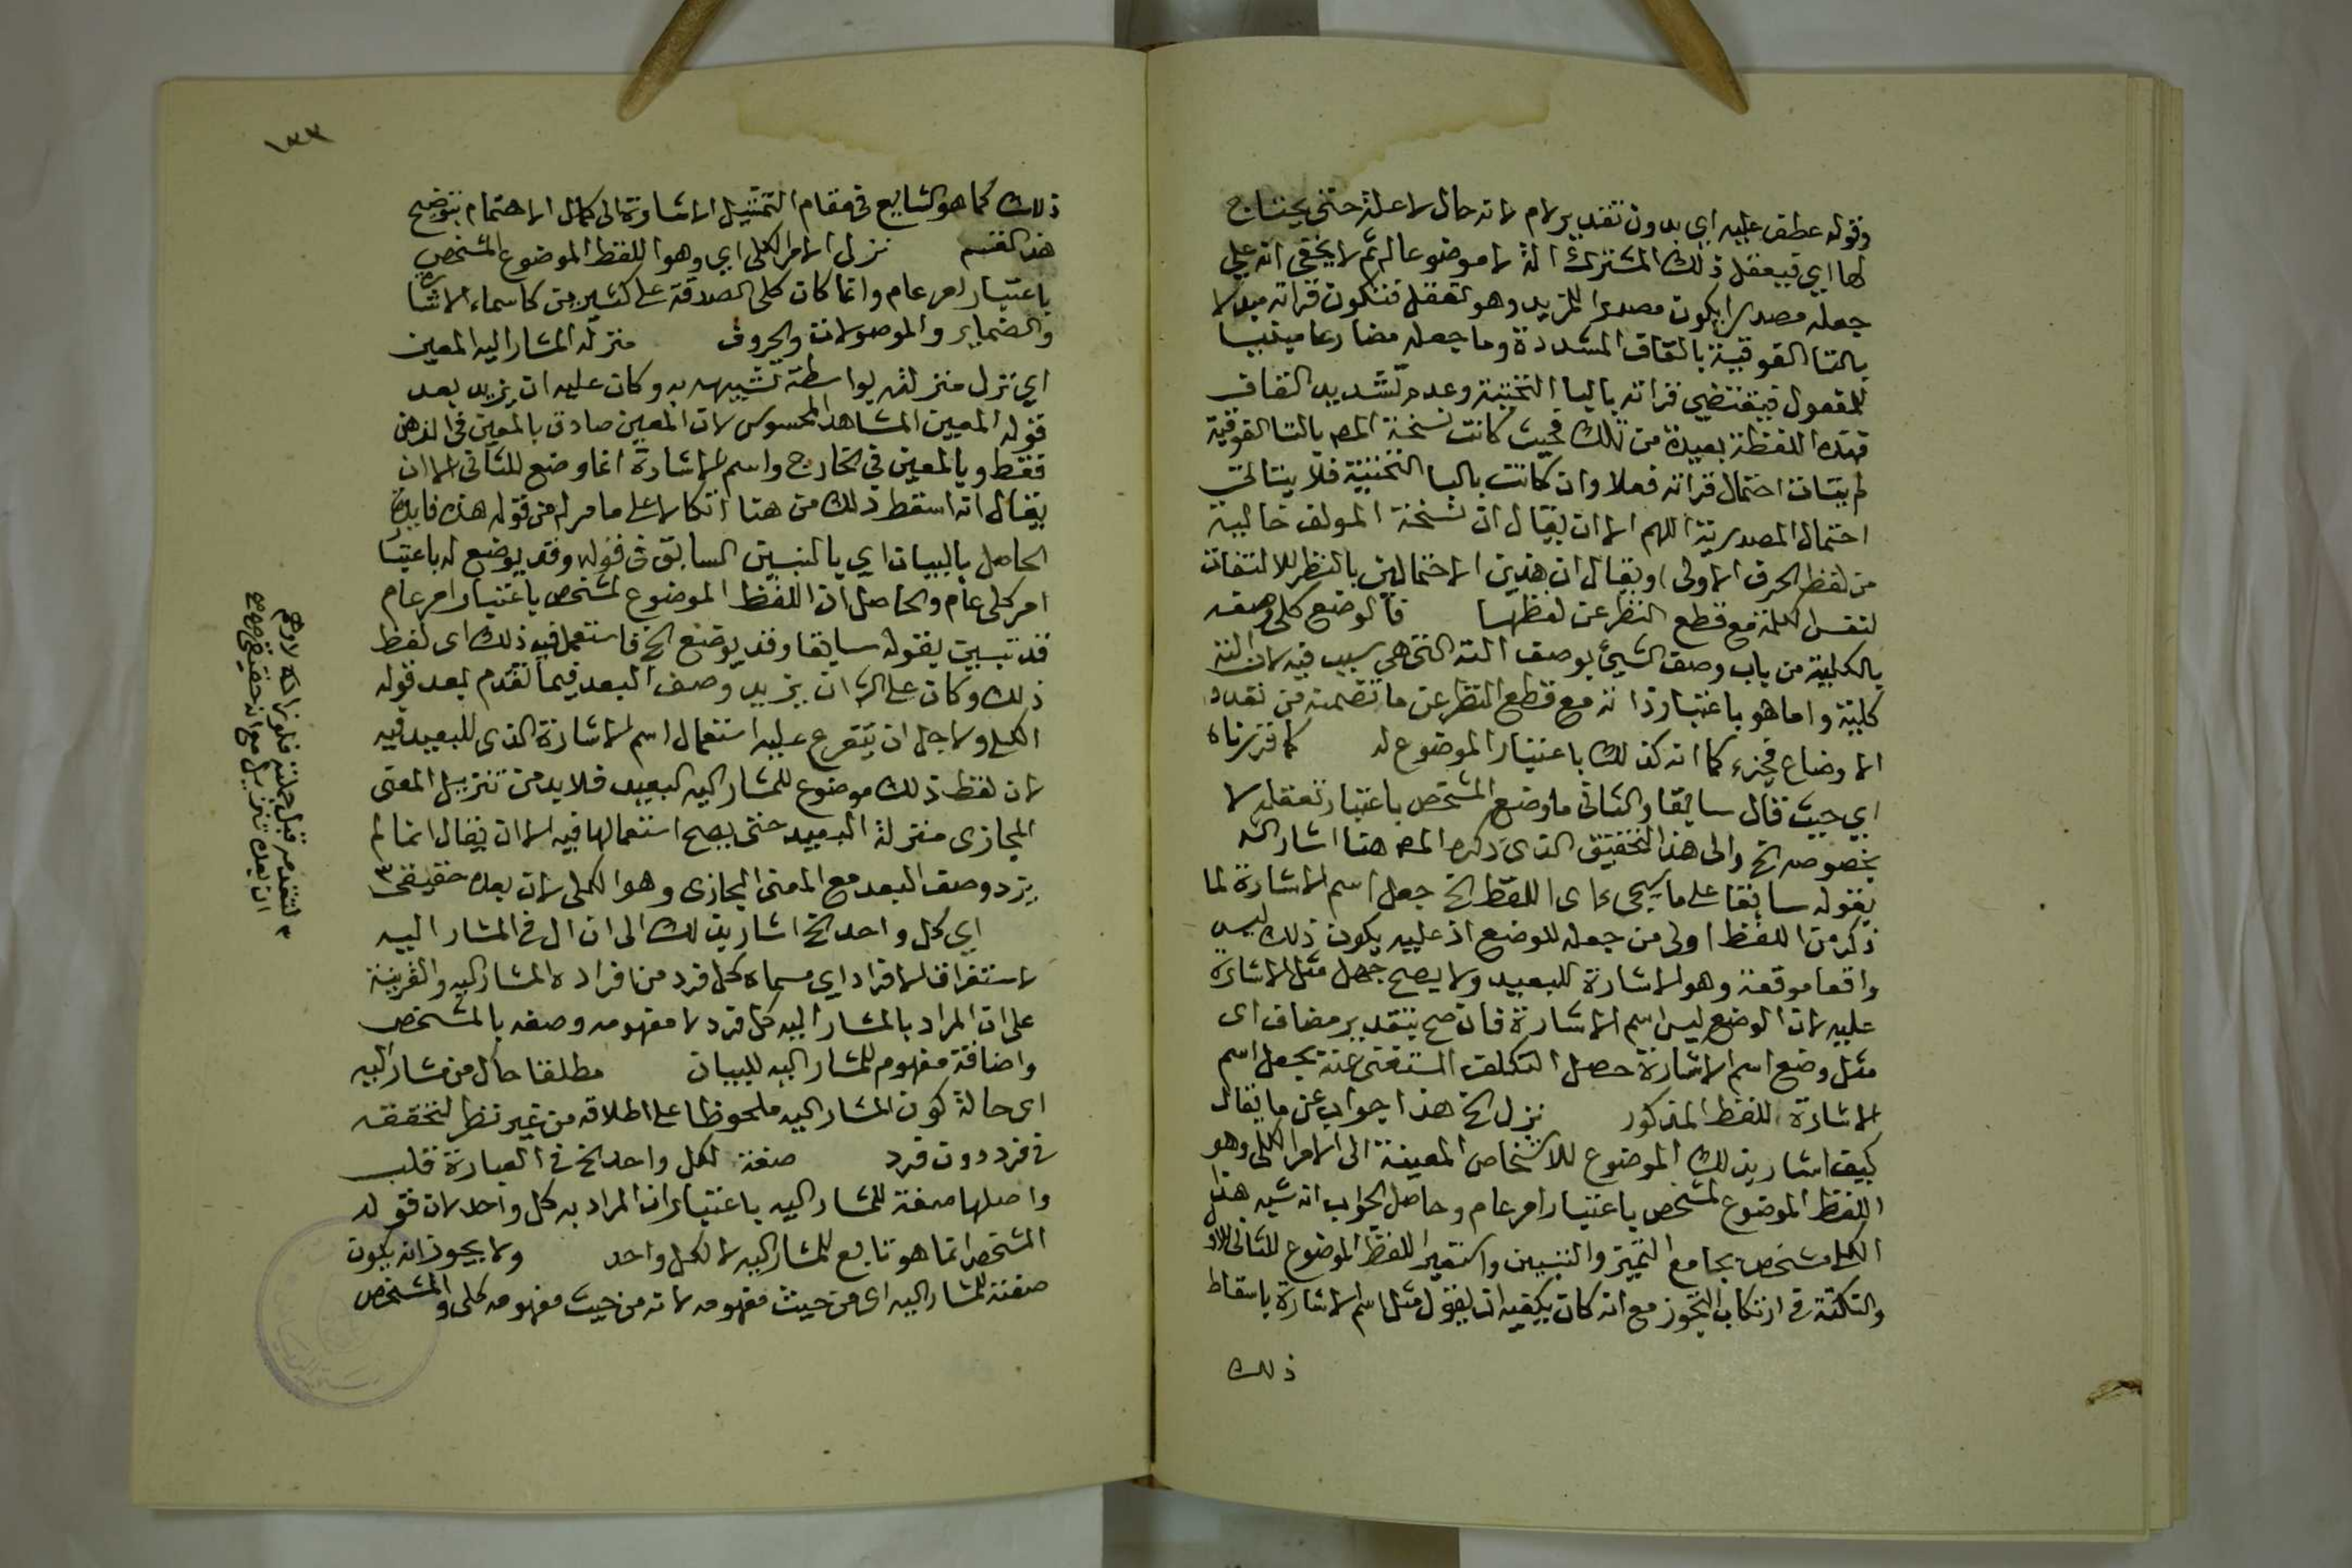 وقوله عطف عليه اي بدون تقدير لام لانه حال لا علة حتى يحتاج
لها اي فيعقل ذلك المشترك آلة لا موضوعا له ثم لا يخفى انه على
جعله مصدرا يكون مصدر المزيد وهو تعقل فتكون قراته مبدلا
بالتا الفوقية بالقاف المشددة وما جعله مضارعا مبنيا
للمفعول فيقتضي قراته باليا التحتية وعدم تشديد القاف
فهذه اللفظة بعيدة من تلك فحيث كانت نسخة المص بالتا الفوقية
لم يتات احتمال قراته فعلا وان كانت باليا التحتية فلا يتاتى
احتمال المصدرية اللهم الا ان يقال ان نسخة المولف خالية
من لفظ الحرف الاولى او يقال ان هذين الاحتمالين بالنظر للالتفات
لنفس الكلمة مع قطع النظر عن لفظها فالوضع كلي وصفه
بالكلية من باب وصف الشيء بوصف آلته التي هي سبب فيه لان آلته
كلية واما هو باعتبار ذاته مع قطع النظر عن ما تضمنه من تعدد
الاوضاع فجزء كما انه كذلك باعتبار الموضوع له كما قررناه
اي حيث قال سابقا والثاني ما وضع المشخص باعتبار تعقله لا
بخصوصه الخ والى هذا التحقيق الذي ذكره المص هنا اشار الش
بقوله سابقا على ما سيجيء اى اللفظ الخ جعل اسم الاشارة لما
ذكر من اللفظ اولى من جعله للوضع اذ عليه يكون ذلك ليس
واقعا موقعه وهو الاشارة للبعيد ولا يصح جعل مثل الاشارة
عليه لان الوضع ليس اسم الاشارة فان صح بتقدير مضاف اى
مثل وضع اسم الاشارة حصل التكلف المستغنى عنه بجعل اسم
الاشارة للفظ المذكور نزل الخ هذا جواب عن ما يقال
كيف اشار بذلك الموضوع للاشخاص المعينة الى الامر الكلى وهو
اللفظ الموضوع لمشخص باعتبار امر عام وحاصل الجواب انه شبه هذا
الكلى بمشخص بجامع التمييز والتبيين واستعير اللفظ الموضوع للثانى للاول
والنكتة فى ارتكاب التجوز مع انه كان يكفيه ان يقول مثل اسم الاشارة باسقاط
ذلك
١٣٣
ذلك كما هو الشايع فى مقام التمثيل الاشارة الى كمال الاهتمام بتوضيح
هذا القسم نزل الامر الكلى اي وهو اللفظ الموضوع لمشخص
باعتبار امر عام وانما كان كلى الصدقه على كثيرين كاسماء الاشارة
والضماير والموصولات والحروف منزلة المشار اليه المعين
اي نزل منزلته بواسطة تشبيهه به وكان عليه ان يزيد بعد
قوله المعين المشاهد المحسوس لان المعين صادق بالمعين فى الذهن
فقط وبالمعين في الخارج واسم الاشارة انما وضع للثانى الا ان
يقال انه اسقط ذلك من هنا اتكالا على ما مر له من قوله هذه فايدة
الحاصل بالبيان اي بالتبيين السابق فى قوله وقد يوضع له باعتبار
امر كلى عام والحاصل ان اللفظ الموضوع لمشخص باعتبار امر عام
قد تبين بقوله سابقا وقد يوضع الخ فاستعمل فيه ذلك اى لفظ
ذلك وكان على الش ان يزيد وصف البعد فيما تقدم بعد قوله
الكلى ولاجل ان يتفرع عليه استعمال اسم الاشارة الذى للبعيد فيه
لان لفظ ذلك موضوع للمشار اليه البعيد فلا بد من تنزيل المعنى
المجازى منزلة البعيد حتى يصح استعمالها فيه الا ان يقال انما لم
يزد وصف البعد مع المعنى المجازى وهو الكلى لان بعده حقيقى ٣
اي كل واحد الخ اشار بذلك الى ان ال فى المشار اليه
لاستغراق الافراد اي مسماه كل فرد من افراده المشار اليه والقرينة
على ان المراد بالمشار اليه كل فرد لا مفهومه وصفه بالمشخص
واضافة مفهوم للمشار اليه للبيان مطلقا حال من مشار اليه
اى حالة كون المشار اليه ملحوظا على اطلاقه من غير نظر لتحققه
فى فرد دون فرد صفة لكل واحد الخ فى العبارة قلب
واصلها صفة للمشار اليه باعتبار ان المراد به كل واحد لان قوله
المشخص انما هو تابع للمشار اليه لا لكل واحد ولا يجوز ان يكون
صفة للمشار اليه اى من حيث مفهومه لانه من حيث مفهومه كلى والمشخص
٣ لتقدمه قبل جملته فلو زاده لاوهم
ان بعده تنزيلى مع انه حقيقى صح